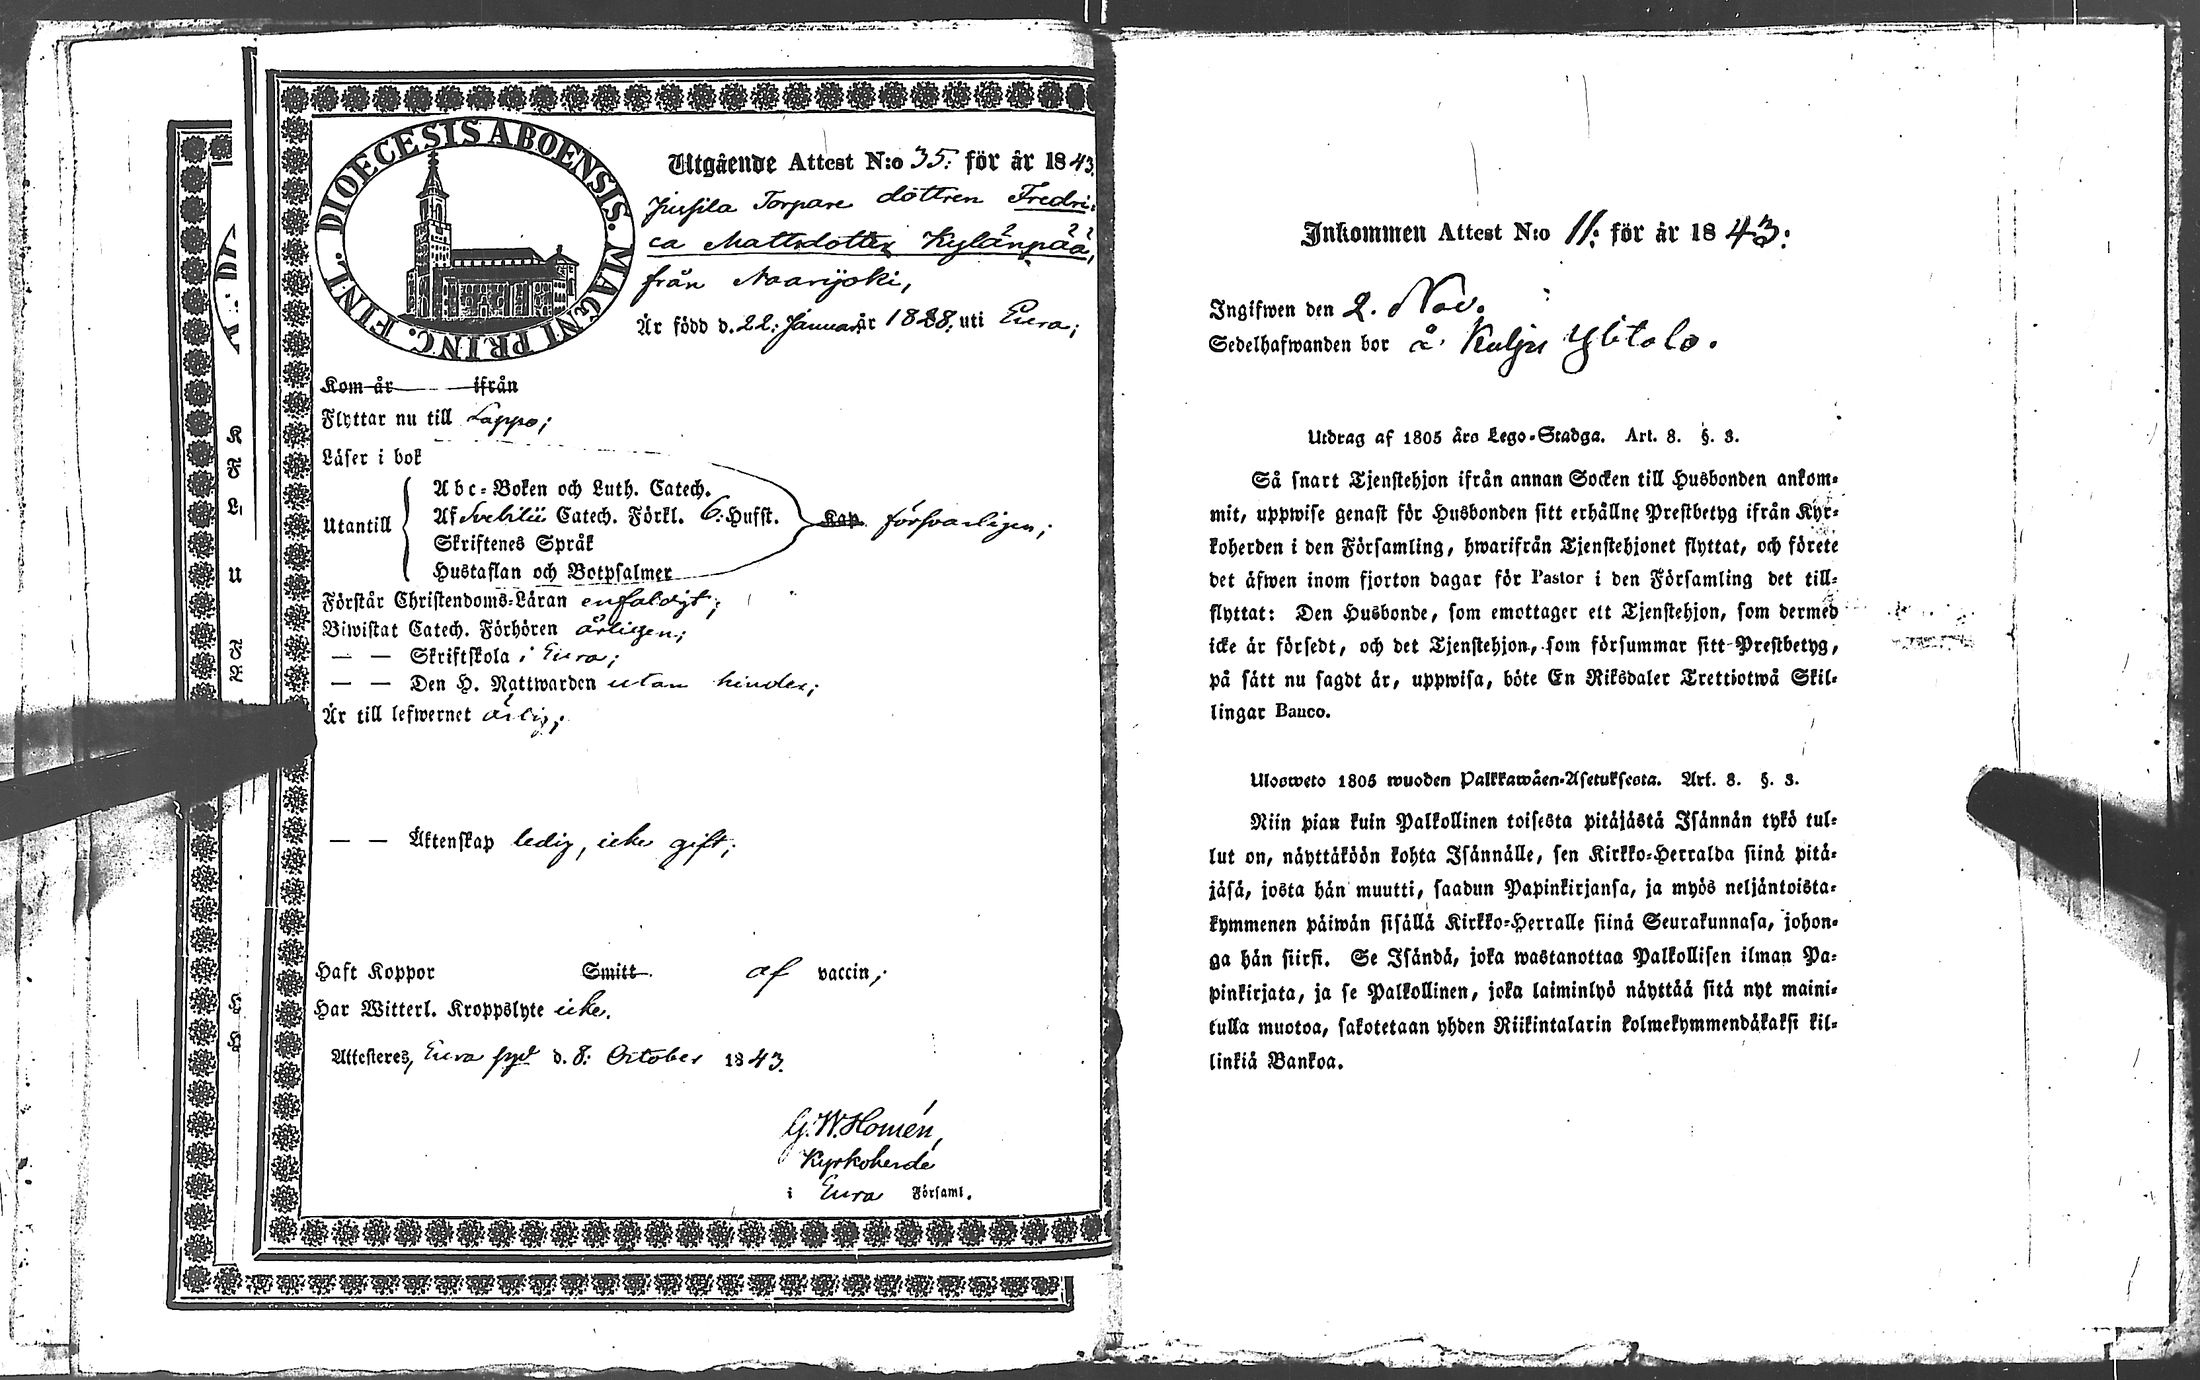 DIOECESIS ABOENSIS. MAGNI PRINC. FINL.
Utgående Attest N:o 35: för år 1843.
Torpare dottren Fredri-
ca Mattsdotter Kylänpää,
från Naarijoki,
Är född d. 22: Januarii år 1828. uti Eura;
Kom år ifrån
Flyttar nu till Lappo;
Läser i bok
Utantill
Abc-Boken och Luth. Catech.
Af Svebilii Catech. Förkl. 6: Hufst. Kap. försvarligen;
Skriftenes Språk
Hustaflan och Botpsalmer
Förstår Christendoms-Läran enfaldigt;
Biwistat Catech. Förhören årligen;
— — Skriftskola i Eura;
— — Den H. Nattwarden utan hinder;
Är till lefwernet ärlig;
— — Äktenskap ledig, icke gift;
Haft Koppor Smitt af vaccin;
Har Witterl. Kroppslyte icke.
Attesteres, Eura d. 8: October 1843.
G. W. Homén,
Kyrkoherde
i Eura Församl.
Inkommen Attest N:o 11: för år 1843:
Ingifwen den 2. Nov.
Sedelhafwanden bor å Kulju Ylitalo.
Utdrag af 1805 års Lego-Stadga. Art. 8. §. 3.
Så snart Tjenstehjon ifrån annan Socken till Husbonden ankom-
mit, uppwise genast för Husbonden sitt erhållne Prestbetyg ifrån Kyr-
koherden i den Församling, hwarifrån Tjenstehjonet flyttat, och förete
det äfwen inom fjorton dagar för Pastor i den Församling det till-
flyttat: Den Husbonde, som emottager ett Tjenstehjon, som dermed
icke är försedt, och det Tjenstehjon, som försummar sitt Prestbetyg,
på sätt nu sagdt är, uppwisa, böte En Riksdaler Trettiotwå Skil-
lingar Banco.
Ulosweto 1805 wuoden Palkkawäen-Asetuksesta. Art. 8. §. 3.
Niin pian kuin Palkollinen toisesta pitäjästä Isännän tykö tul-
lut on, näyttäköön kohta Isännälle, sen Kirkko-Herralda siinä pitä-
jäsä, josta hän muutti, saadun Papinkirjansa, ja myös neljäntoista-
kymmenen päiwän sisällä Kirkko-Herralle siinä Seurakunnasa, johon-
ga hän siirsi. Se Isändä, joka wastanottaa Palkollisen ilman Pa-
pinkirjata, ja se Palkollinen, joka laiminlyö näyttää sitä nyt maini-
tulla muotoa, sakotetaan yhden Riikintalarin kolmekymmendäkaksi kil-
linkiä Bankoa.